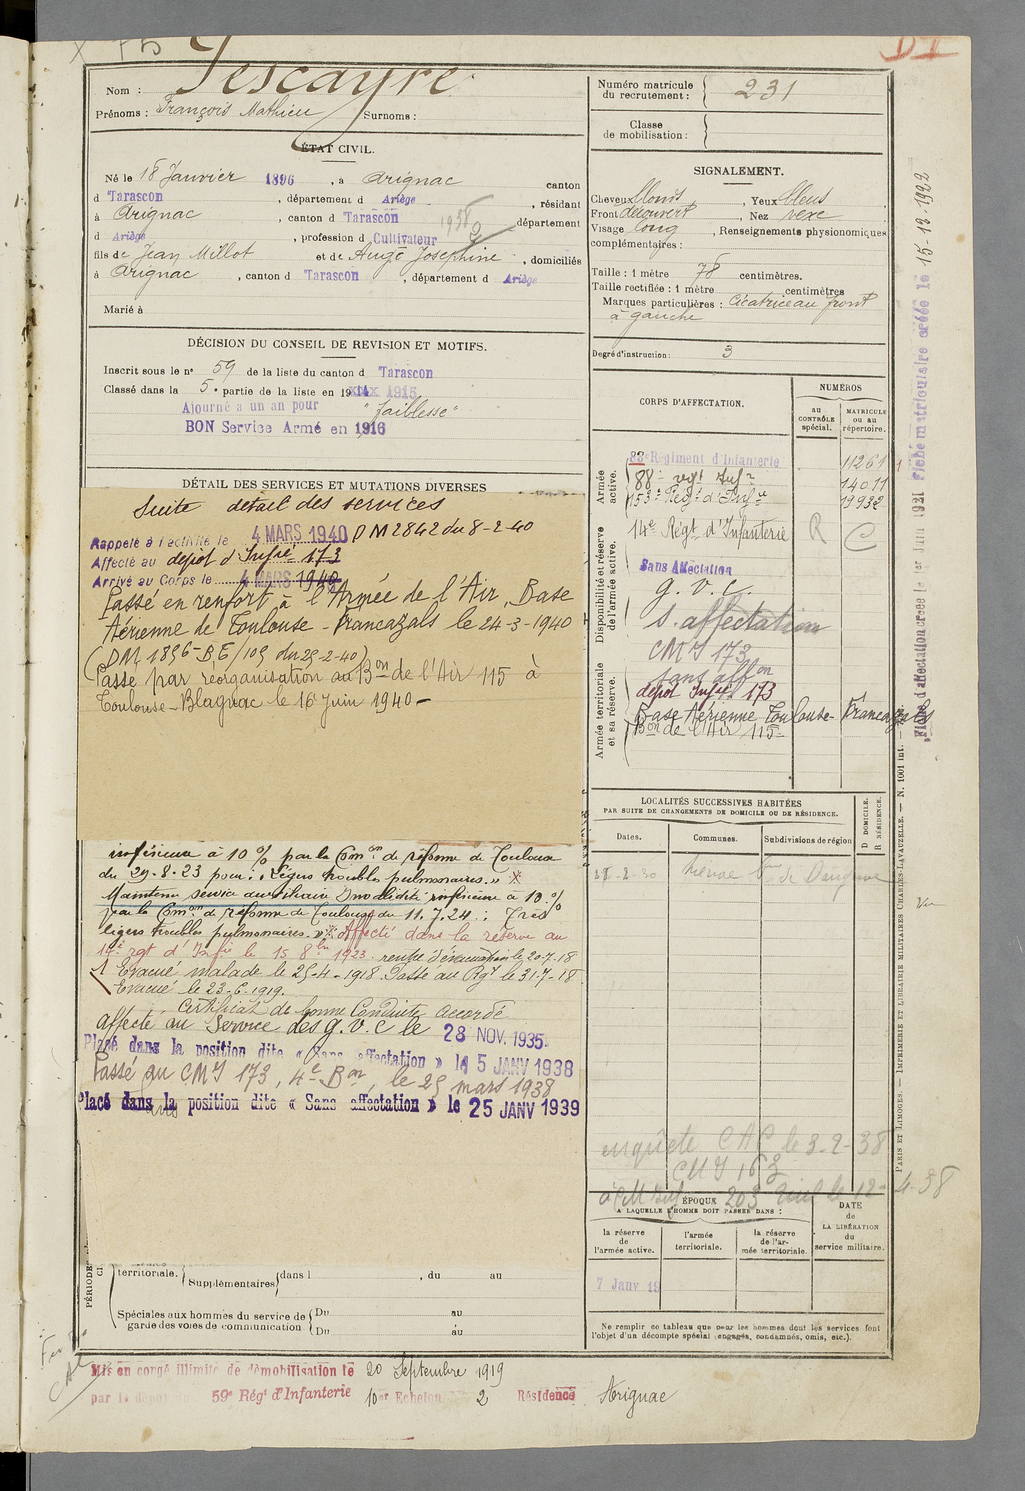 Nom : Pescayré
Prénoms : François Mathieu Surnoms :
ÉTAT CIVIL.
Né le 18 Janvier 1896, à Arignac canton
d Tarascon, département d Ariège, résidant
à Arignac, canton d Tarascon département
d Ariège, profession d Cultivateur
fils de Jean Millot et de Augé Josephine, domiciliés
à Arignac, canton d Tarascon, département d Ariège
Marié à
DÉCISION DU CONSEIL DE REVISION ET MOTIFS.
Inscrit sous le n° 59 de la liste du canton d Tarascon
Classé dans la 5e partie de la liste en 1915
Ajourné a un an pour "faiblesse"
BON Service Armé en 1916
DÉTAIL DES SERVICES ET MUTATIONS DIVERSES
Suite détail des services
Rappelé à l'activité le 4 MARS 1940 DM 2842 du 8-2-40
Affecté au dépot d'Infie 173
Arrivé au Corps le 4 MARS 1940
Passé en renfort à l'Armée de l'Air, Base
Aérienne de Toulouse-Francazals le 24-3-1940
(DM 1896-BE/109 du 29-2-40)
Passé par réorganisation au Bon de l'Air 115 à
Toulouse-Blagnac le 16 Juin 1940-
inférieure à 10% par la Comon de réforme de Toulouse
du 29-8-23 pour : "Légers troubles pulmonaires."
Maintenu service auxiliaire Invalidité inférieure à 10%
par la Comon de réforme de Toulouse du 11.7.24 : Très
légers troubles pulmonaires. Affecté dans la réserve au
14e rgt d'Infie le 15 8bre 1923. rentré d'évacuation le 20-7-18
Evacué malade le 25-4-1918. Passé au Rgt le 31-7-18
Evacué le 23-6-1919.
Certificat de bonne Conduite accordé
affecté au Service des g.v.c le 28 NOV. 1935
Placé dans la position dite « Sans affectation » le 5 JANV 1938
Passé au CMI 173, 4e Bon, le 25 mars 1938
Placé dans la position dite « Sans affectation » le 25 JANV 1939
PÉRIODE
territoriale. Supplémentaires dans l , du au
Spéciales aux hommes du service de garde des voies de communication. Du au
Du au
Mis en congé illimité de démobilisation le 20 Septembre 1919
par le dépot 59e Régt d'Infanterie 10er Echelon 2 Résidence Arignac
Numéro matricule du recrutement : 231
Classe de mobilisation :
SIGNALEMENT.
Cheveux blonds, Yeux bleus
Front découvert, Nez vexe
Visage long, Renseignements physionomiques
complémentaires :
Taille : 1 mètre 78 centimètres.
Taille rectifiée : 1 mètre centimètres
Marques particulières : Cicatrice au front
à gauche
Degré d'instruction : 3
CORPS D'AFFECTATION.
NUMÉROS
au CONTRÔLE spécial.
MATRICULE ou au répertoire.
Armée active.
83e Régiment d'Infanterie 11261
88e regt Infie 14011
153e Régt d'Infie 19932
Disponibilité et réserve de l'armée active.
14e Régt d'Infanterie R C
Sans Affectation
g.v.c.
s. affectation
CMI 173
Armée territoriale et sa réserve.
sans affon
dépot Infie 173
Base Aérienne Toulouse-Francazals
Bon de l'Air 115-
LOCALITÉS SUCCESSIVES HABITÉES
PAR SUITE DE CHANGEMENTS DE DOMICILE OU DE RÉSIDENCE.
D DOMICILE. R RÉSIDENCE.
Dates. Communes. Subdivisions de région
enquête CAP le 3-2-38
CMI 163
ÉPOQUE
A LAQUELLE L'HOMME DOIT PASSER DANS :
DATE de LA LIBÉRATION du service militaire.
la réserve de l'armée active.
l'armée territoriale.
la réserve de l'armée territoriale.
7 Janv 19
Ne remplir ce tableau que pour les hommes dont les services font
l'objet d'un décompte spécial (engagés, condamnés, omis, etc.).
Fiche d'affectation créée le 1er Juin 1921 Fiche matriculaire créée le 15-12-1922
PARIS ET LIMOGES. — IMPRIMERIE ET LIBRAIRIE MILITAIRES CHARLES-LAVAUZELLE. — N. 1001 int.